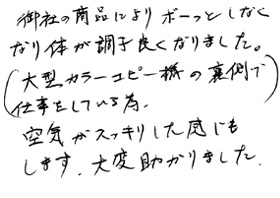 御社の商品によりボーっとしなく
なり体が調子良くなりました。
(大型カラーコピー機の裏側で
仕事をしている為。)
空気がスッキリした感じも
します。大変助かりました。